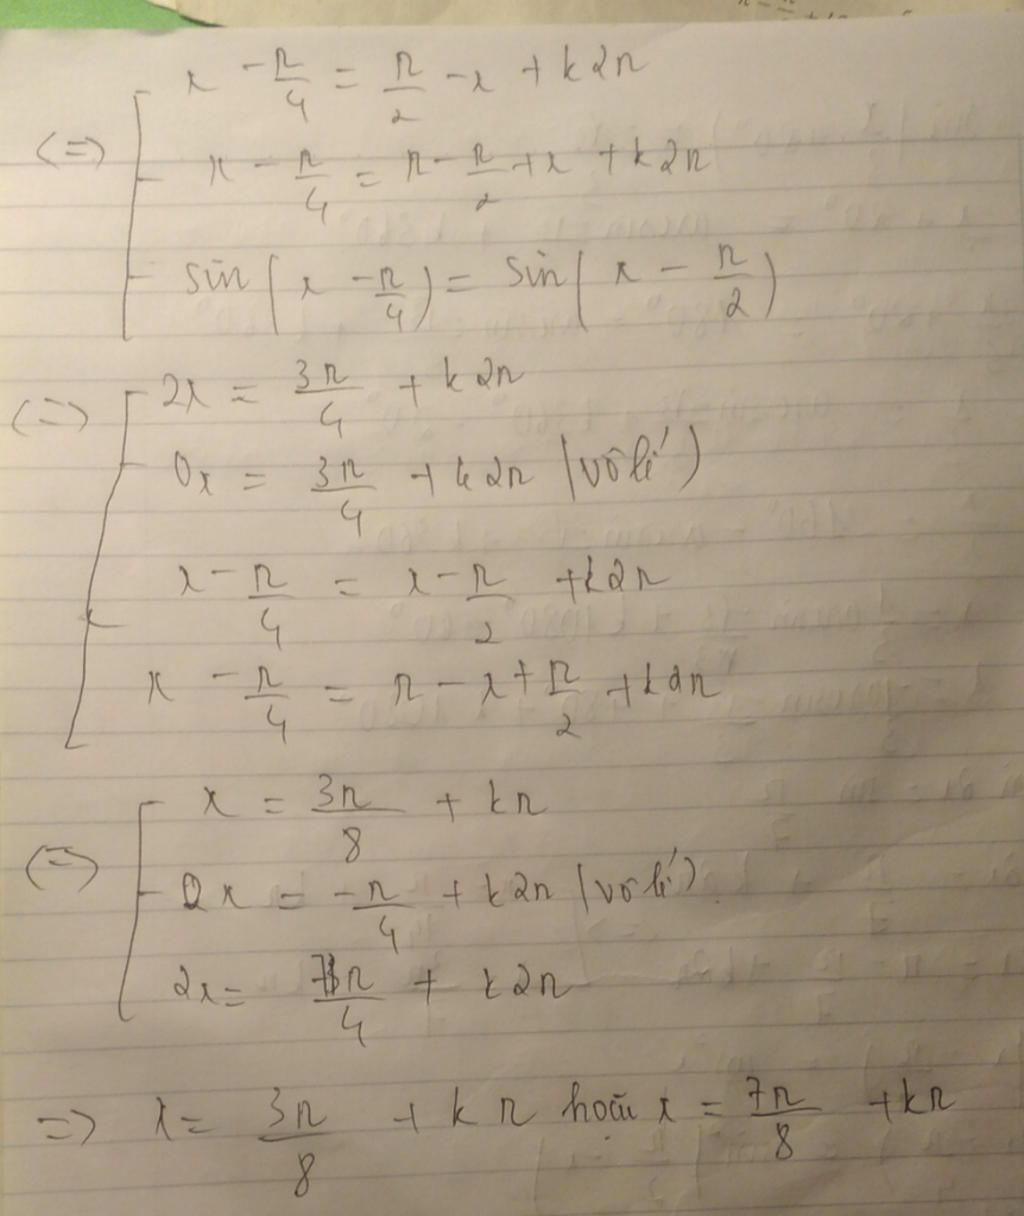 x - π/4 = π/2 - x + k2π
(=) x - π/4 = π - π/2 + x + k2π
sin(x - π/4) = sin(x - π/2)
(=) 2x = 3π/4 + k2π
0x = 3π/4 + k2π (vô lí)
x - π/4 = x - π/2 + k2π
x - π/4 = π - x + π/2 + k2π
x = 3π/8 + kπ
(=) 0x = -π/4 + k2π (vô lí)
2x = 7π/4 + k2π
=> x = 3π/8 + kπ hoặc x = 7π/8 + kπ